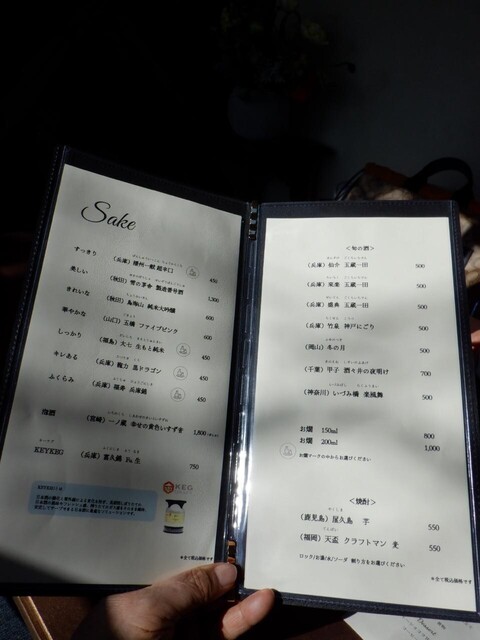 Sake
すっきり (兵庫) 播州一献 超辛口 450
美しい (秋田) 雪の茅舎 製造番号酒 1,300
きれいな (秋田) 鳥海山 純米大吟醸 600
華やかな (山口) 五橋 ファイブピンク 600
しっかり (福島) 大七 生もと純米 450
キレある (兵庫) 龍力 黒ドラゴン 450
ふくらみ (兵庫) 福寿 兵庫錦 450
泡酒 (宮崎) 一ノ蔵 幸せの黄色いすず音 1,800
KEYKEG (兵庫) 富久錦 生 750
KEG
※全て税込価格です
<旬の酒>
(兵庫) 仙介 五蔵一田 500
(兵庫) 来楽 五蔵一田 500
(兵庫) 盛典 五蔵一田 500
(兵庫) 竹泉 神戸にごり 500
(岡山) 冬の月 500
(千葉) 甲子 酒々井の夜明け 700
(神奈川) いづみ橋 楽風舞 500
お燗 150ml 800
お燗 200ml 1,000
お燗マークの中からお選びください
<焼酎>
(鹿児島) 屋久島 芋 550
(福岡) 天盃 クラフトマン 麦 550
ロック/お湯/水/ソーダ 割り方をお選びください
※全て税込価格です